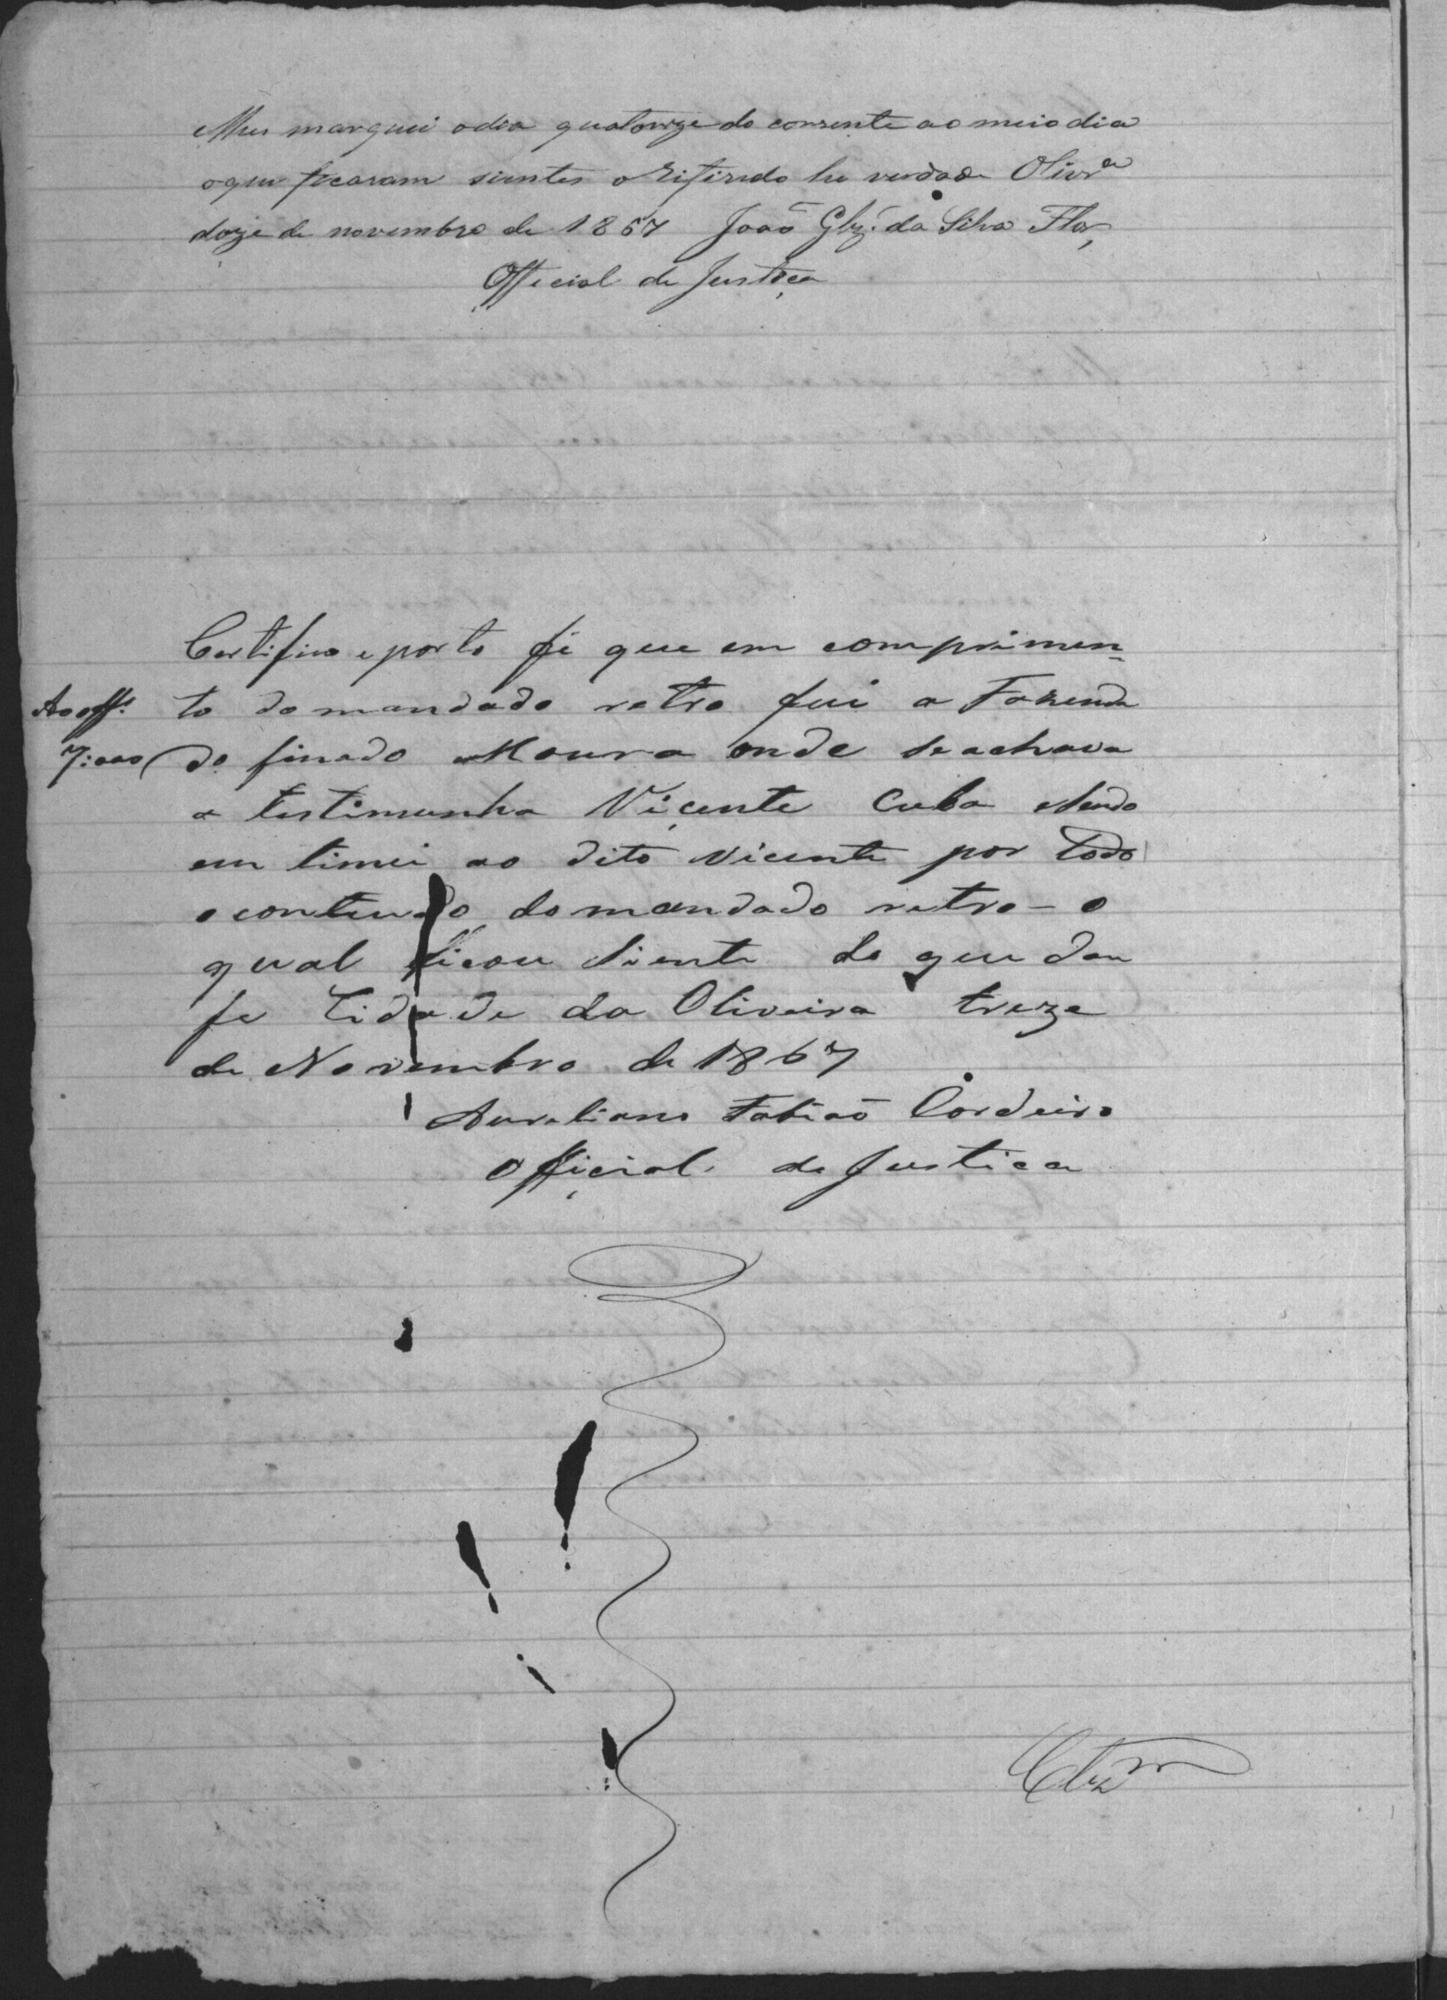 lhes marquei odia quatorze do corrente ao meio dia
oque ficaram sientes o Rifirido he verdade Olivrª
doze de novembro de 1867 João Glz. da Silva Flor
Official de Justiça
Certifico e porto fé que em comprimen=
Ao offl. to do mandado retro fui a Fazenda
7:000 do finado Moura onde se achava
a testimunha Vicente Cuba ahendo
em timei ao dito Vicente por todo
o conteudo do mandado retro - o
qual ficou siente do que dou
fe Cidade da Oliveira treze
de Novembro de 1867
Aureliano Fabiaõ Cordeiro
Official de Justica